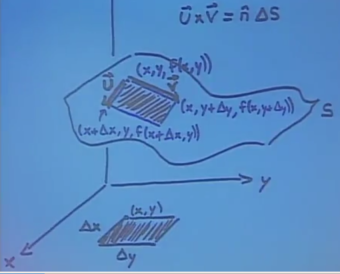 U⃗ x V⃗ = n̂ ΔS
(x, y, f(x,y))
U⃗
V⃗
(x, y+Δy, f(x, y+Δy))
S
(x+Δx, y, f(x+Δx, y))
y
(x, y)
Δx
x
Δy